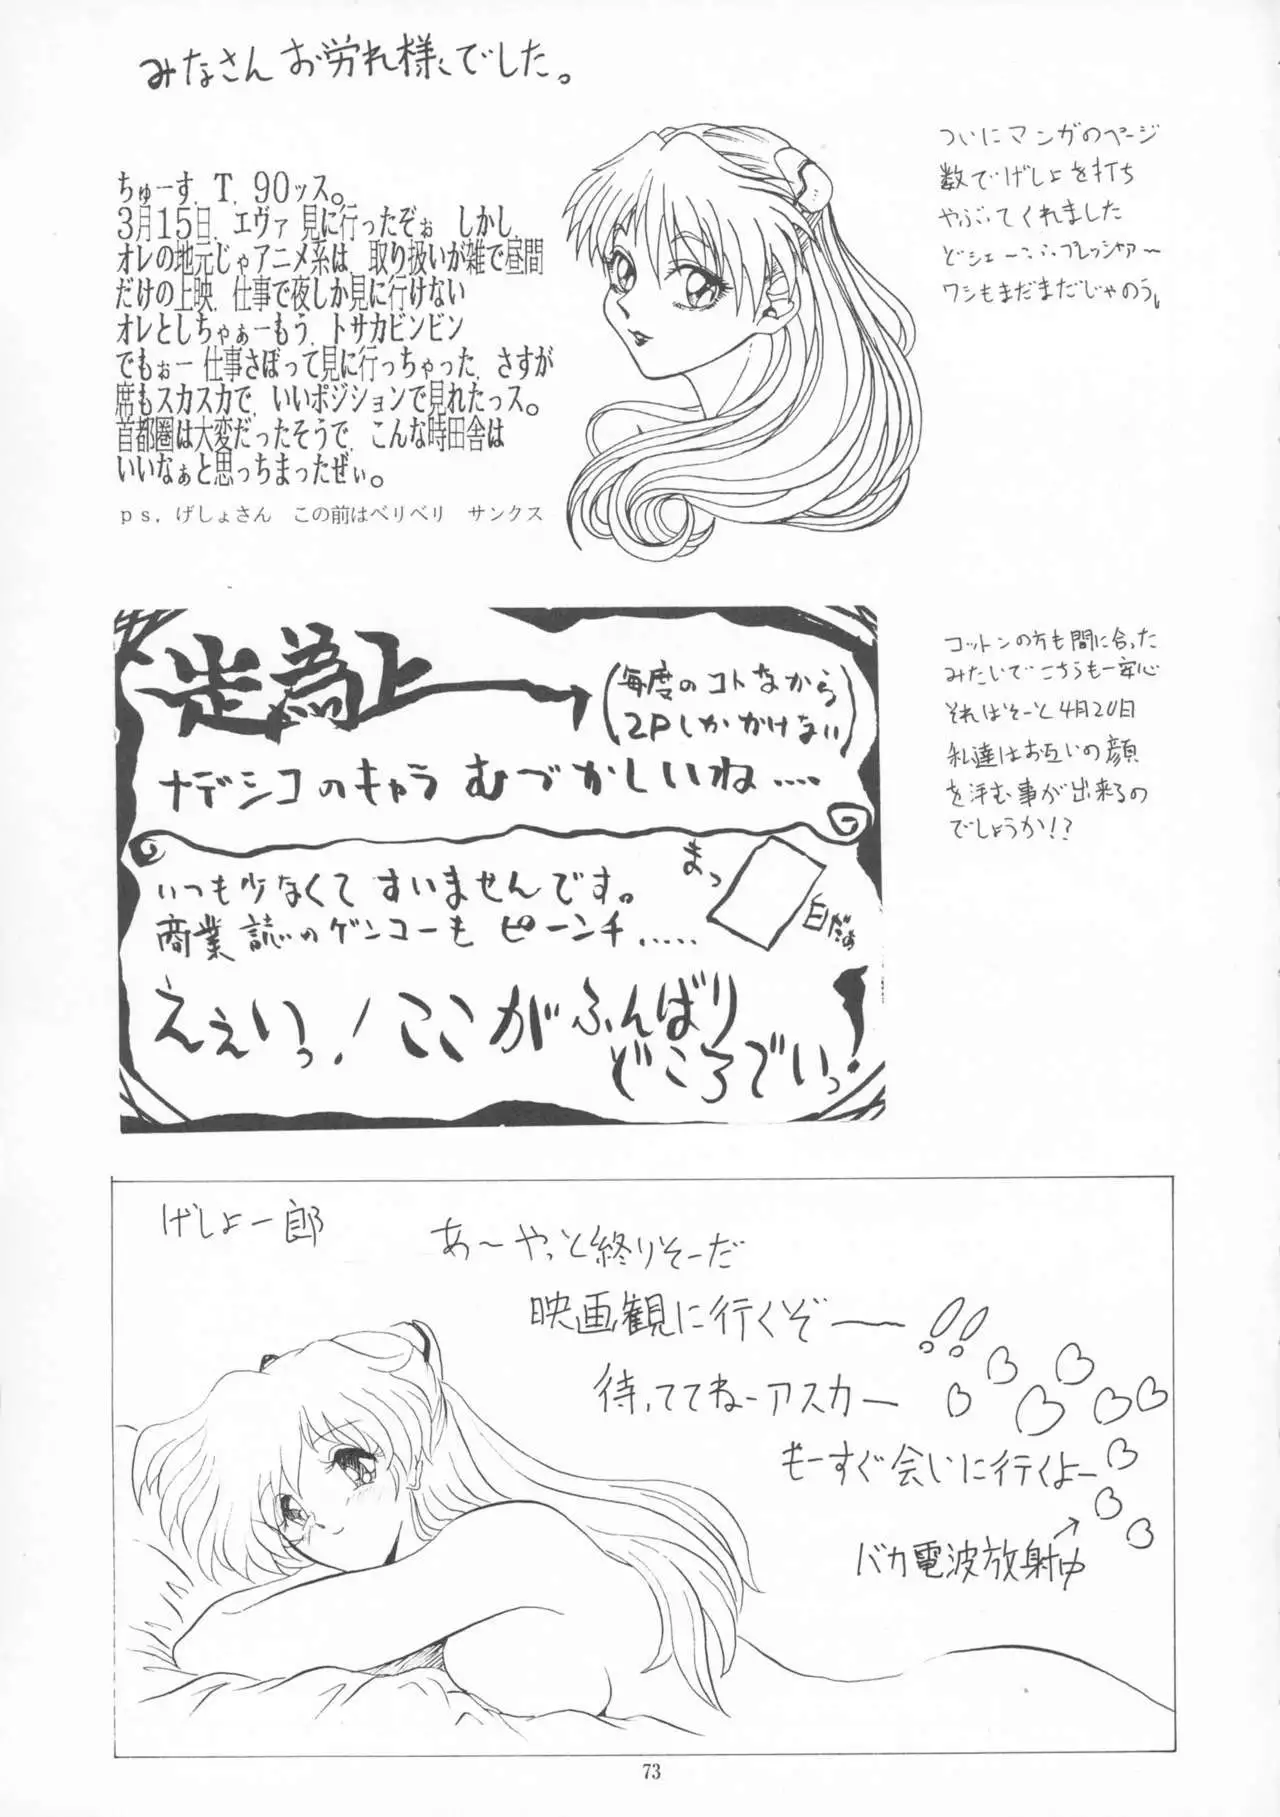 みなさんお労れ様でした。
ちゅーす, T, 90ッス。
3月15日, エヴァ 見に行ったぞぉ しかし,
オレの地元じゃアニメ系は 取り扱いが雑で昼間
だけの上映, 仕事で夜しか見に行けない
オレとしちゃぁーもう, トサカビンビン
でもぉー 仕事さぼって見に行っちゃった, さすが
席もスカスカで, いいポジションで見れたっス。
首都圏は大変だったそうで, こんな時田舎は
いいなぁと思っちまったぜぃ。
ps, げしょさん この前はベリベリ サンクス
ついにマンガのページ
数でげしょを打ち
やぶってくれました
どシェー・・・プレッシャァ〜
ワシもまだまだじゃのう。
走為上
(毎度のコトながら
2Pしかかけない)
ナデシコのキャラ むづかしいね....
いつも少なくて すいませんです。
商業誌のゲンコーも ピーンチ.....
まっ
白だぁ
えぇいっ! ここがふんばり
どころでいっ!
コットンの方も間に合った
みたいで こちらも一安心
それはそーと4月20日
私達はお互いの顔
を拝む事が出来るの
でしょうか!?
げしょ一郎
あ〜やっと終りそーだ
映画観に行くぞー!!
待っててねーアスカー
もーすぐ会いに行くよー
バカ電波放射中
73